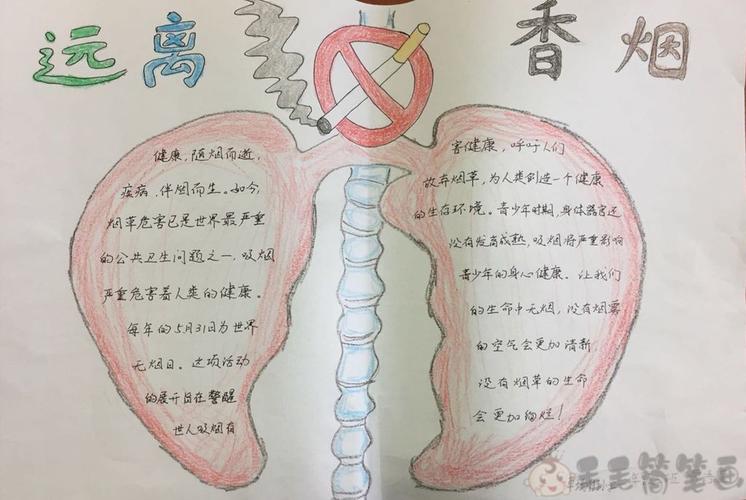 远离香烟
健康，随烟而逝，
疾病，伴烟而生。如今，
烟草危害已是世界最严重
的公共卫生问题之一，吸烟
严重危害着人类的健康。
每年的5月31日为世界
无烟日。这项活动
的展开旨在警醒
世人吸烟有
害健康，呼吁人们
放弃烟草，为人类创造一个健康
的生存环境。青少年时期，身体器官还
没有发育成熟，吸烟将严重影响
青少年的身心健康。让我们
的生命中无烟，没有烟雾
的空气会更加清新，
没有烟草的生命
会更加绚烂！
毛毛简笔画